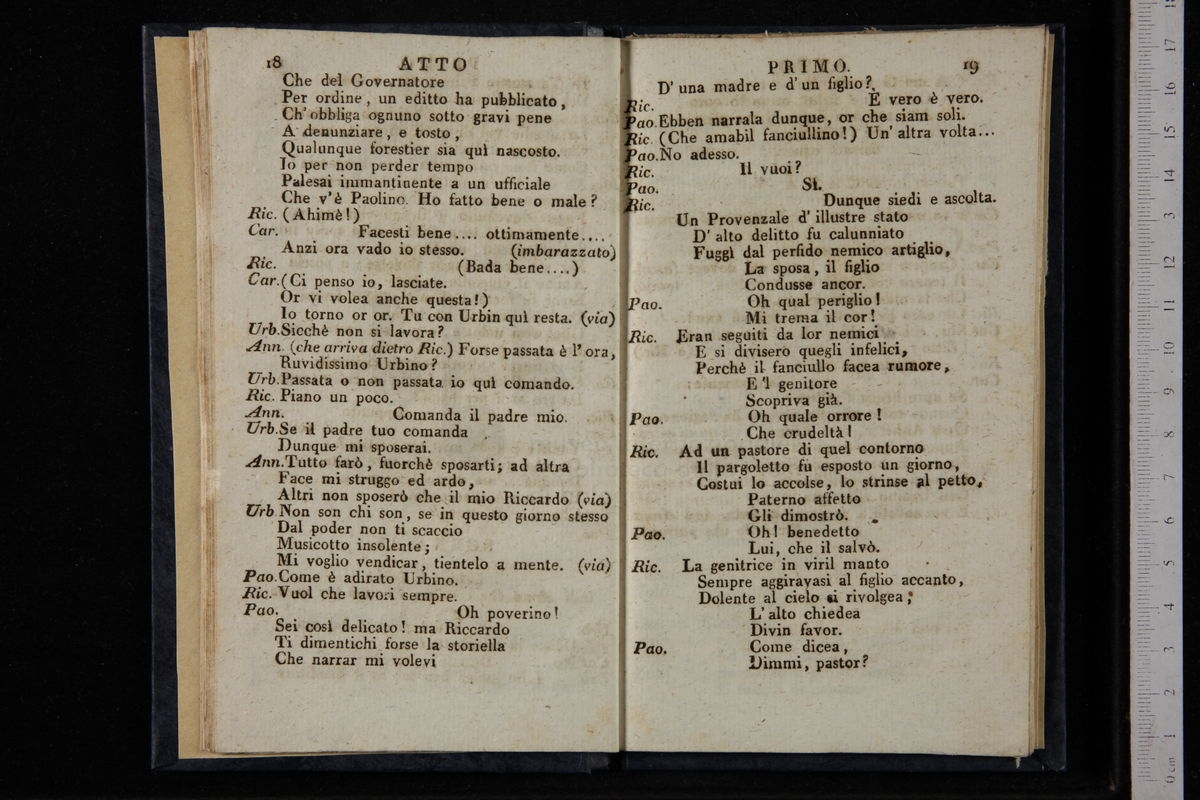 18 ATTO
Che del Governatore
Per ordine, un editto ha pubblicato,
Ch' obbliga ognuno sotto gravi pene
A denunziare, e tosto,
Qualunque forestier sia quì nascosto.
Io per non perder tempo
Palesai immantinente a un ufficiale
Che v'è Paolino. Ho fatto bene o male?
Ric. (Ahimè!)
Car. Facesti bene.... ottimamente....
Anzi ora vado io stesso. (imbarazzato)
Ric. (Bada bene....)
Car. (Ci penso io, lasciate.
Or vi volea anche questa!)
Io torno or or. Tu con Urbin quì resta. (via)
Urb. Sicchè non si lavora?
Ann. (che arriva dietro Ric.) Forse passata è l' ora,
Ruvidissimo Urbino?
Urb. Passata o non passata io quì comando.
Ric. Piano un poco.
Ann. Comanda il padre mio.
Urb. Se il padre tuo comanda
Dunque mi sposerai.
Ann. Tutto farò, fuorchè sposarti; ad altra
Face mi struggo ed ardo,
Altri non sposerò che il mio Riccardo (via)
Urb. Non son chi son, se in questo giorno stesso
Dal poder non ti scaccio
Musicotto insolente;
Mi voglio vendicar, tientelo a mente. (via)
Pao. Come è adirato Urbino.
Ric. Vuol che lavori sempre.
Pao. Oh poverino!
Sei così delicato! ma Riccardo
Ti dimentichi forse la storiella
Che narrar mi volevi
PRIMO. 19
D' una madre e d' un figlio?
Ric. E vero è vero.
Pao. Ebben narrala dunque, or che siam soli.
Ric. (Che amabil fanciullino!) Un' altra volta...
Pao. No adesso.
Ric. Il vuoi?
Pao. Sì.
Ric. Dunque siedi e ascolta.
Un Provenzale d' illustre stato
D' alto delitto fu calunniato
Fuggì dal perfido nemico artiglio,
La sposa, il figlio
Condusse ancor.
Pao. Oh qual periglio!
Mi trema il cor!
Ric. Eran seguiti da lor nemici
E si divisero quegli infelici,
Perchè il fanciullo facea rumore,
E 'l genitore
Scopriva già.
Pao. Oh quale orrore!
Che crudeltà!
Ric. Ad un pastore di quel contorno
Il pargoletto fu esposto un giorno,
Costui lo accolse, lo strinse al petto,
Paterno affetto
Gli dimostrò.
Pao. Oh! benedetto
Lui, che il salvò.
Ric. La genitrice in viril manto
Sempre aggiravasi al figlio accanto,
Dolente al cielo si rivolgea;
L' alto chiedea
Divin favor.
Pao. Come dicea,
Dimmi, pastor?
0 cm 1 2 3 4 5 6 7 8 9 10 11 12 13 14 15 16 17 18